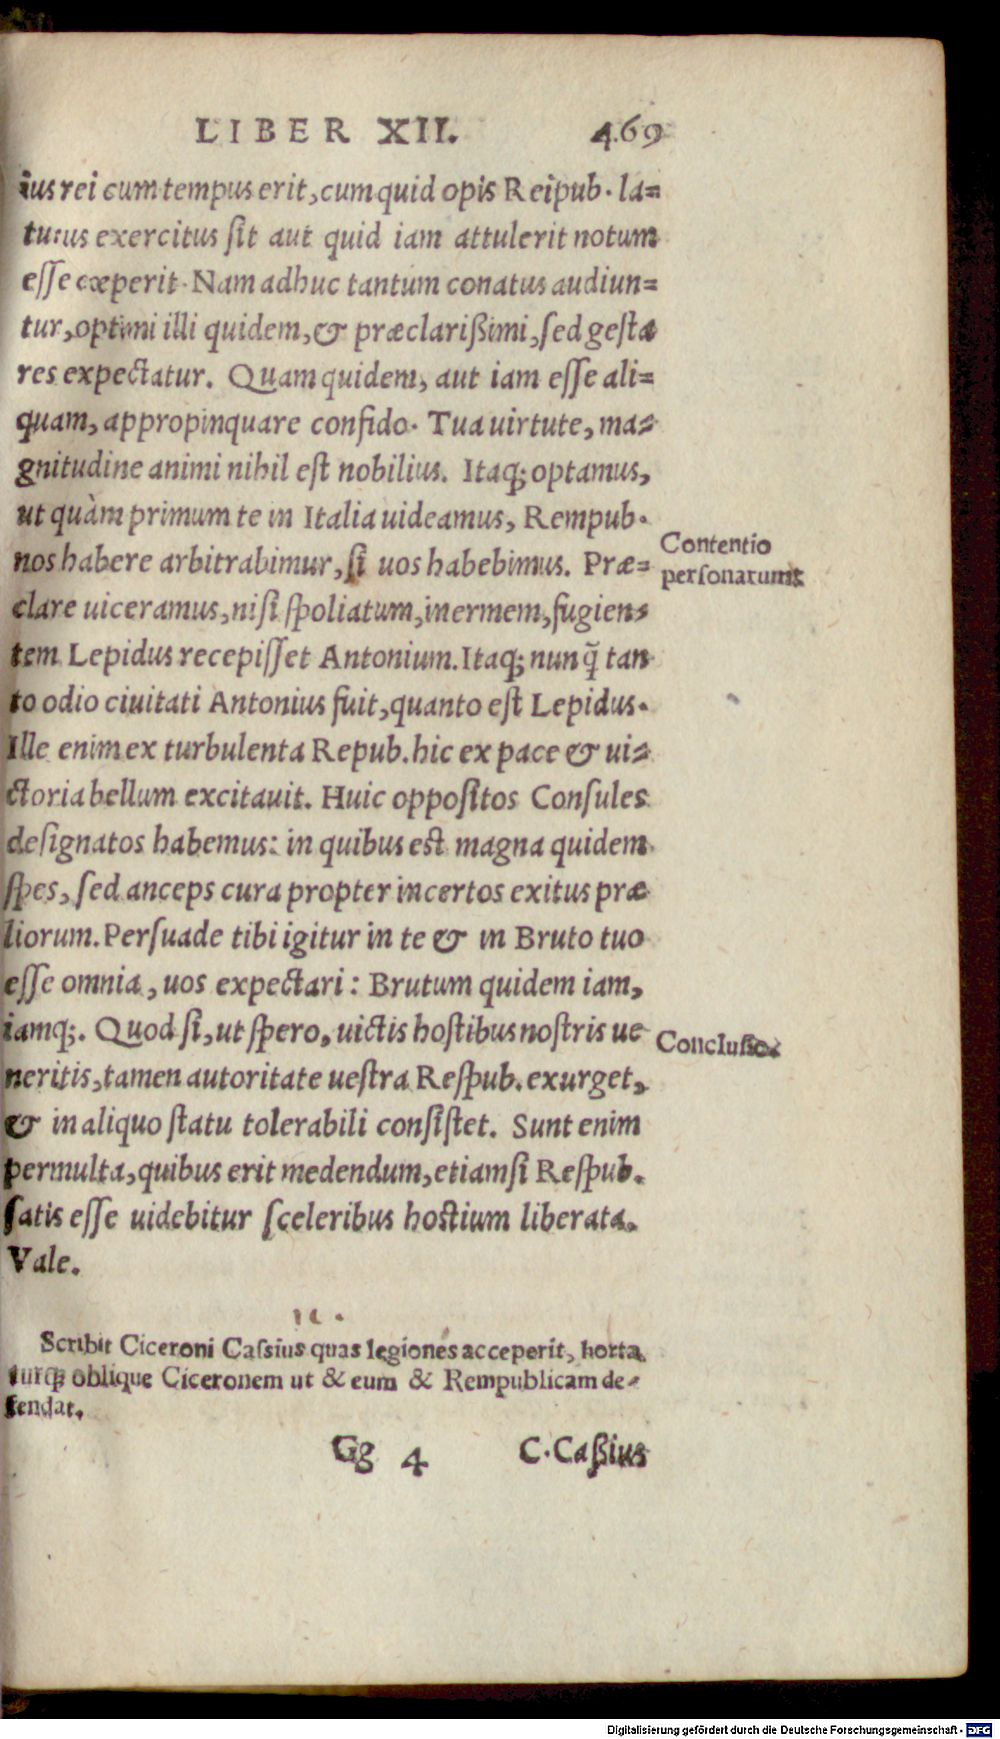 LIBER XII. 469
ius rei cum tempus erit, cum quid opis Reipub. la=
turus exercitus sit aut quid iam attulerit notum
esse cœperit. Nam adhuc tantum conatus audiun=
tur, optimi illi quidem, & præclarißimi, sed gesta
res expectatur. Quam quidem, aut iam esse ali=
quam, appropinquare confido. Tua uirtute, ma=
gnitudine animi nihil est nobilius. Itaq; optamus,
ut quàm primum te in Italia uideamus, Rempub.
nos habere arbitrabimur, si uos habebimus. Præ=
Contentio
personarum
clare uiceramus, nisi spoliatum, inermem, fugien=
tem Lepidus recepisset Antonium. Itaq; nunq̃ tan
to odio ciuitati Antonius fuit, quanto est Lepidus.
Ille enim ex turbulenta Repub. hic ex pace & ui=
ctoria bellum excitauit. Huic oppositos Consules
designatos habemus: in quibus est magna quidem
spes, sed anceps cura propter incertos exitus præ
liorum. Persuade tibi igitur in te & in Bruto tuo
esse omnia, uos expectari: Brutum quidem iam,
iamq;. Quod si, ut spero, uictis hostibus nostris ue
Conclusio.
neritis, tamen autoritate uestra Respub. exurget,
& in aliquo statu tolerabili consistet. Sunt enim
permulta, quibus erit medendum, etiamsi Respub.
satis esse uidebitur sceleribus hostium liberata.
Vale.
Scribit Ciceroni Cassius quas legiones acceperit, horta
turq; oblique Ciceronem ut & eum & Rempublicam de-
fendat.
Gg 4 C. Caßius
Digitalisierung gefördert durch die Deutsche Forschungsgemeinschaft - DFG